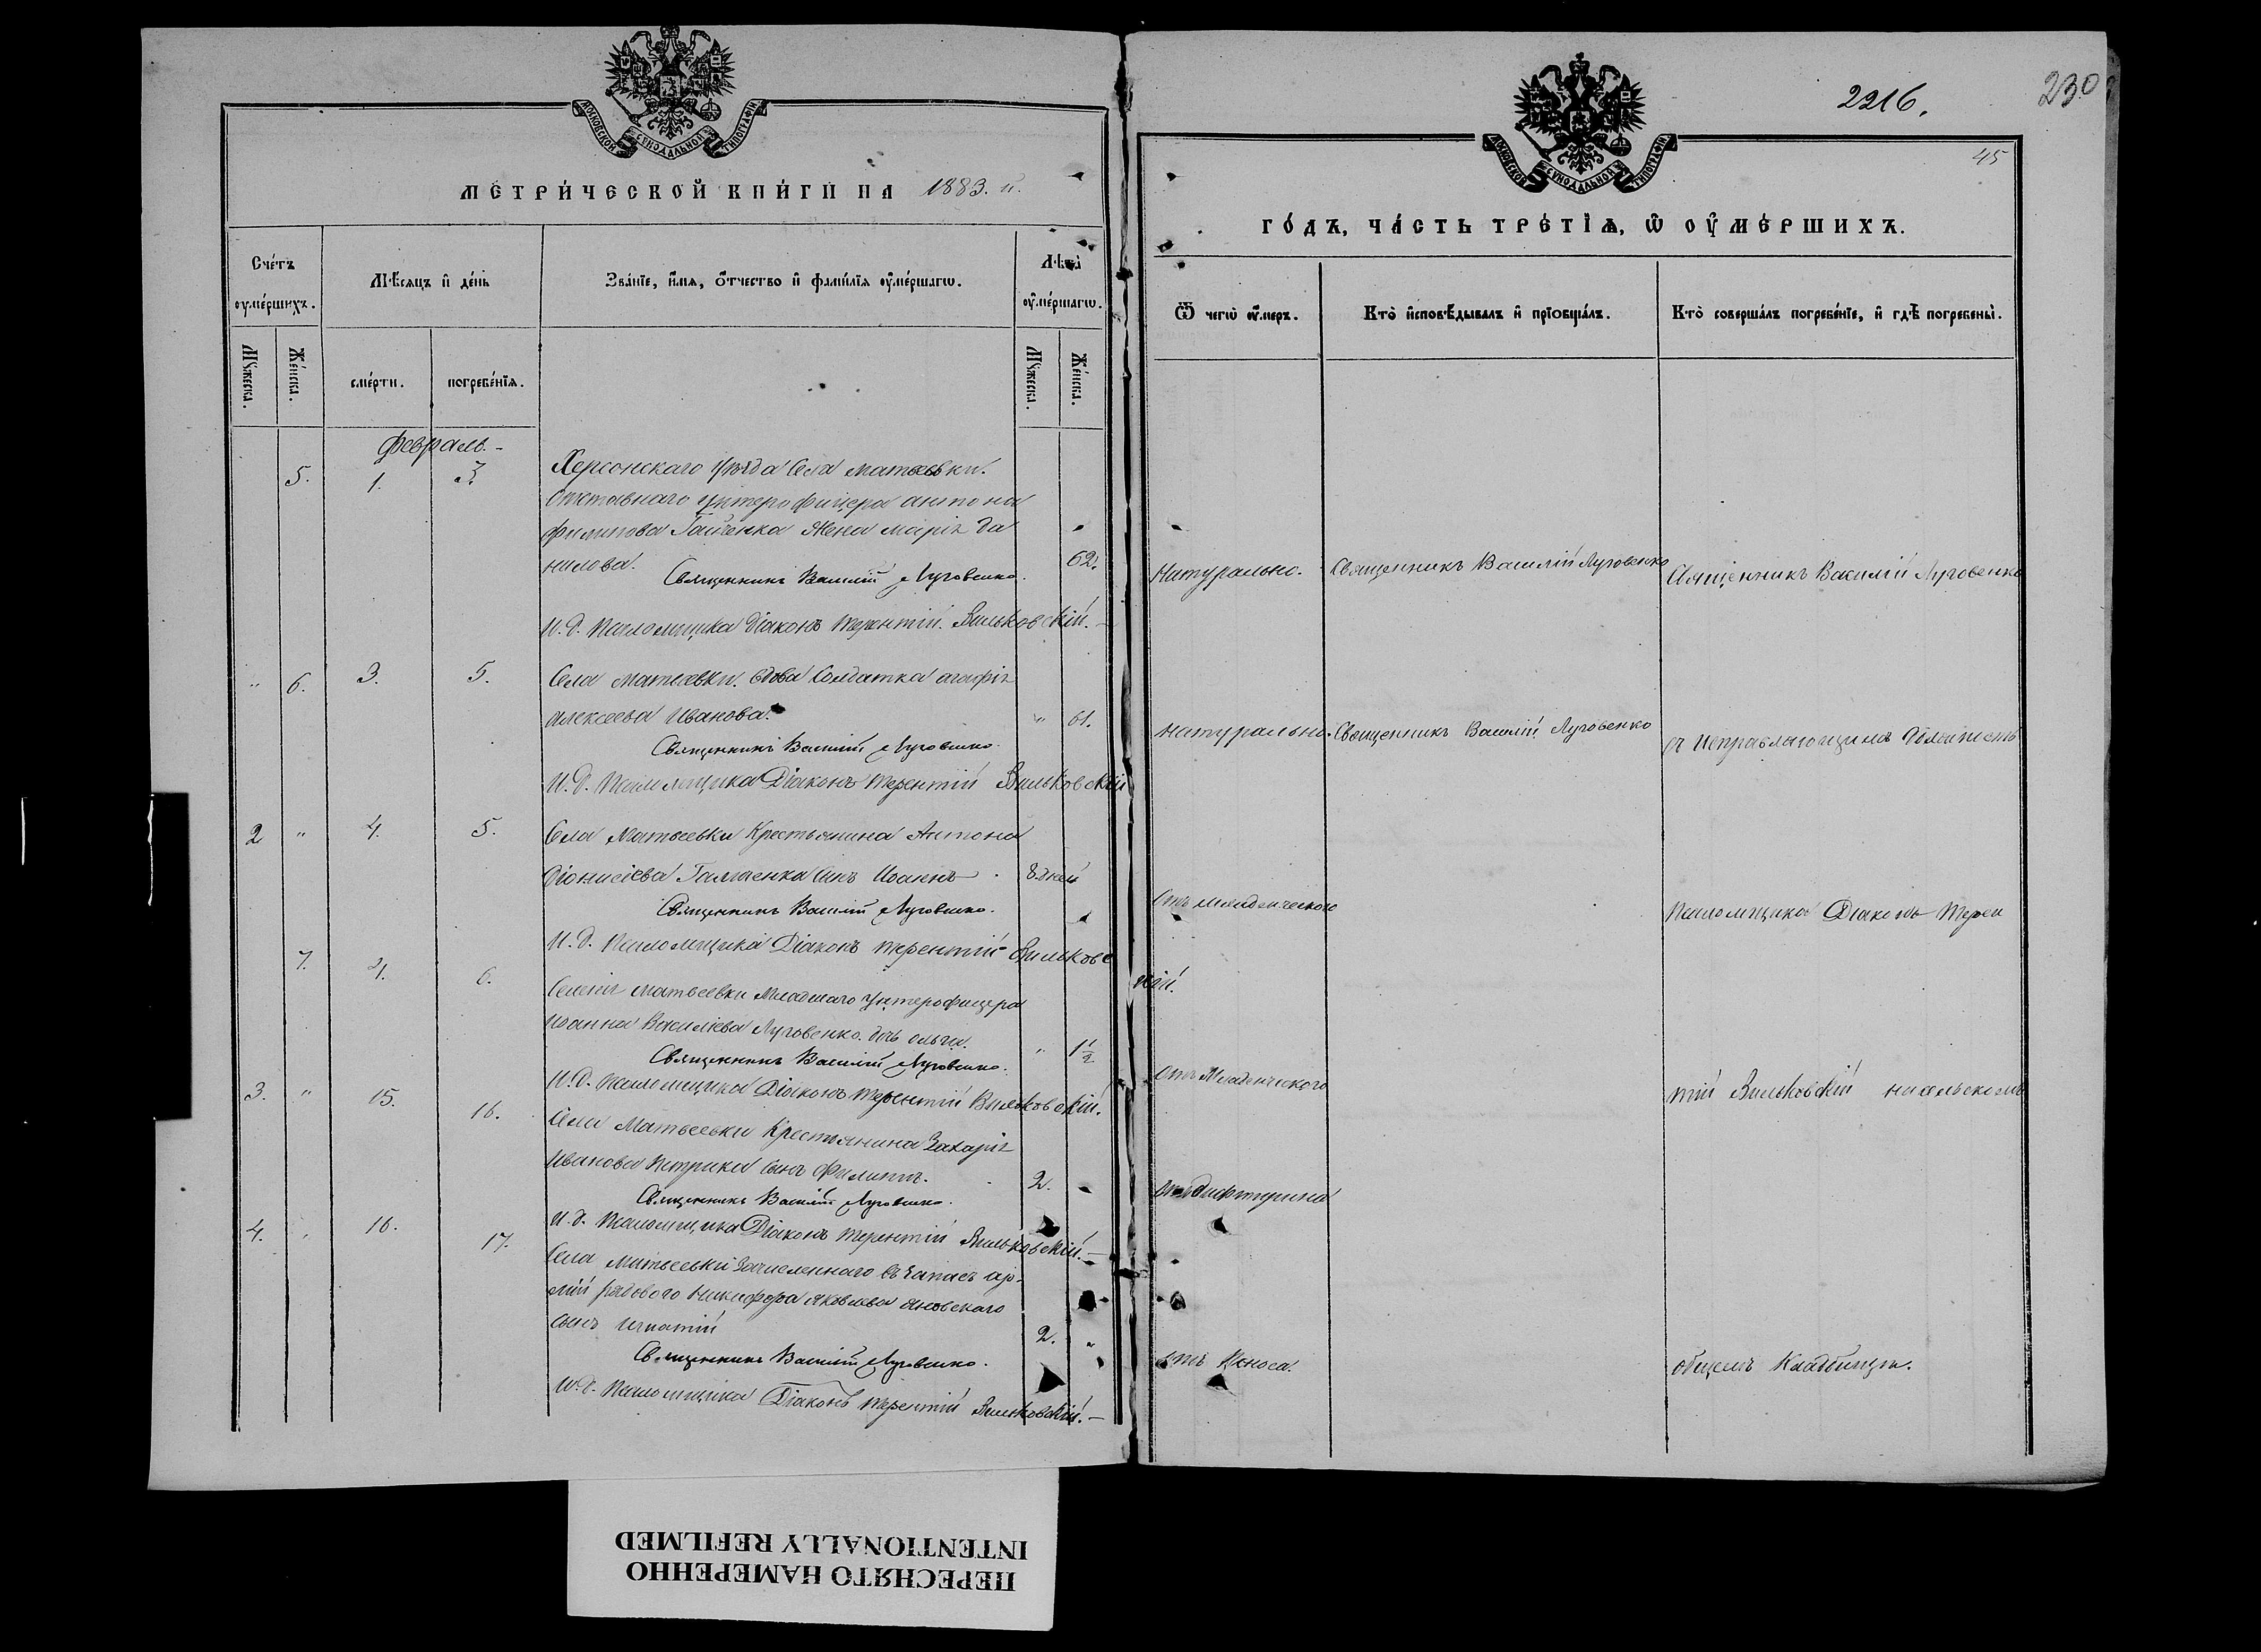 МОСКОВСКОЙ СѴНОДАЛЬНОЙ ТИПОГРАФІИ
МЕТРИ́ЧЕСКОЙ КНИ́ГИ НА 1883.й.
Сче́тъ ᲂу҆ме́ршихъ.
Мѣ́сяцъ и҆ де́нь
Зва́нїе, и҆́мѧ, ѻ҆́тчество и҆ фами́лїѧ ᲂу҆ме́ршагѡ.
Лѣ́та ᲂу҆ме́ршагѡ.
Мꙋ́жеска.
Же́нска.
сме́рти.
погребе́нїѧ.
Мꙋ́жеска.
Же́нска.
Февраль.-
5.
1.
3.
Херсонскаго уѣзда Села Матвѣевки.
Отставнаго унтерофицера Антона
Филипова Гайченка Жена Марія Да
нилова.
62.
Священникъ Василій Луговенко.
И. д. Псаломщика Діаконъ Терентій Вильковскій.-
"
6.
3.
5.
Села Матвѣевки. вдова Солдатка Агафія
Алексеева Иванова.
"
61.
Священникъ Василій Луговенко.
И. д. Псаломщика Діаконъ Терентій Вильковскій
2
"
4.
5.
Села Матвеевки Крестьянина Антона
Діонисіева Галаенка Сынъ Иоаннъ.
8. дней
Священникъ Василій Луговенко.
И. д. Псаломщика Діаконъ Терентій Вильковс
кій.
7.
4.
6.
Селенія Матвеевки Младшаго Унтерофицера
Иоанна Василіева Луговенко. дочь Ольга.
"
1 1/2
Священникъ Василій Луговенко.
И. д. Псаломщика Діаконъ Терентій Вильковскій.
3.
"
15.
16.
Села Матвеевки Крестьянина Захарія
Иванова Петрика Сынъ Филиппъ.
2.
Священникъ Василій Луговенко.
И. д. Псаломщика Діаконъ Терентій Вильковскій.-
4.
"
16.
17.
Села Матвеевки Зачисленнаго въ Запасъ ар-
міи рядового Никифора Яковлева Яновскаго
Сынъ Игнатій
2.
"
Священникъ Василій Луговенко.
И. д. Псаломщика Діаконъ Терентій Вильковскій.-
2216.
230
45
МОСКОВСКОЙ СѴНОДАЛЬНОЙ ТИПОГРАФІИ
ГО́ДЪ, ЧА́СТЬ ТРЕ́ТЇѦ, Ѡ҆ ОУ҆МЕ́РШИХЪ.
Ѿ чегѡ̀ ᲂу҆́меръ.
Кто̀ и҆сповѣ́дывалъ и҆ прїѡбща́лъ.
Кто̀ соверша́лъ погребе́нїе, и҆ гдѣ̀ погребены̀.
Натурально.
Священникъ Василій Луговенко
Священникъ Василій Луговенко
натурально.
Священникъ Василій Луговенко
съ Исправляющимъ Должность
Отъ младенческого
Псаломщика Діаконъ Терен
Отъ Младенческого
тій Вильковскій на сельскомъ
отъ дифтерина
отъ Кноса.
общемъ Кладбищѣ.
ПЕРЕСНЯТО НАМЕРЕННО
INTENTIONALLY REFILMED